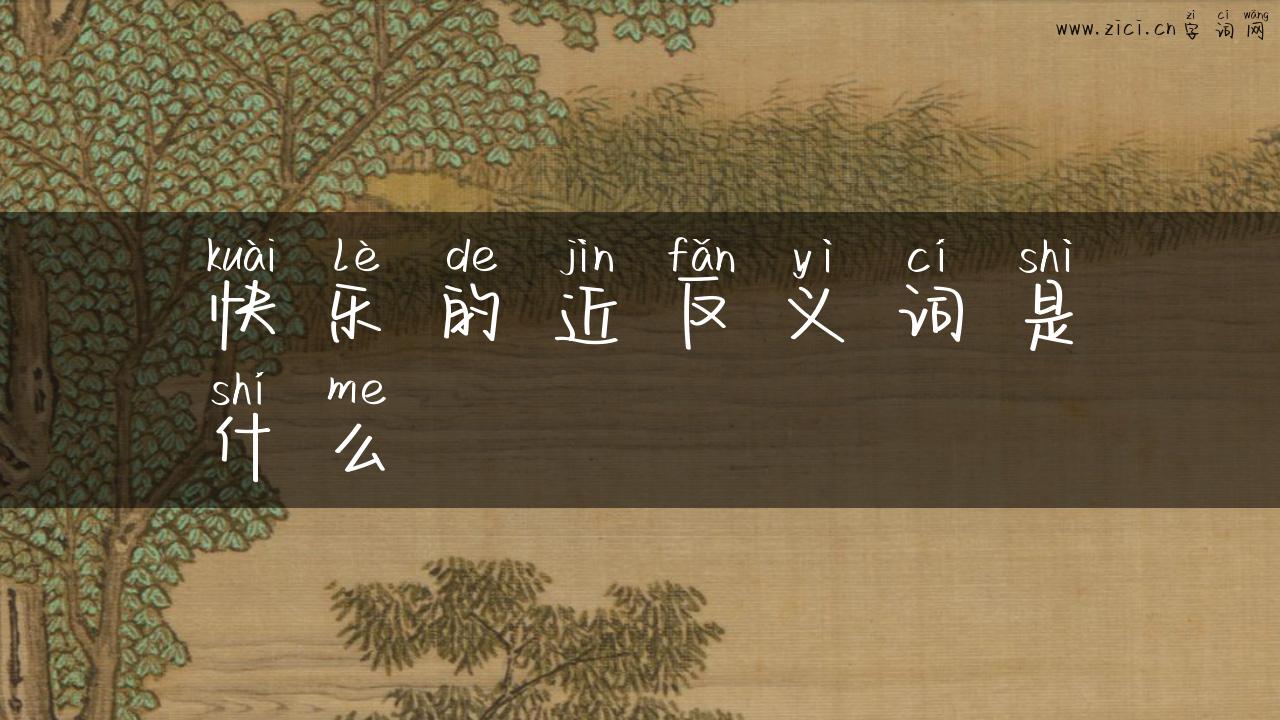 zì cí wǎng
www.zici.cn 字词网
kuài lè de jìn fǎn yì cí shì
快乐的近反义词是
shí me
什么